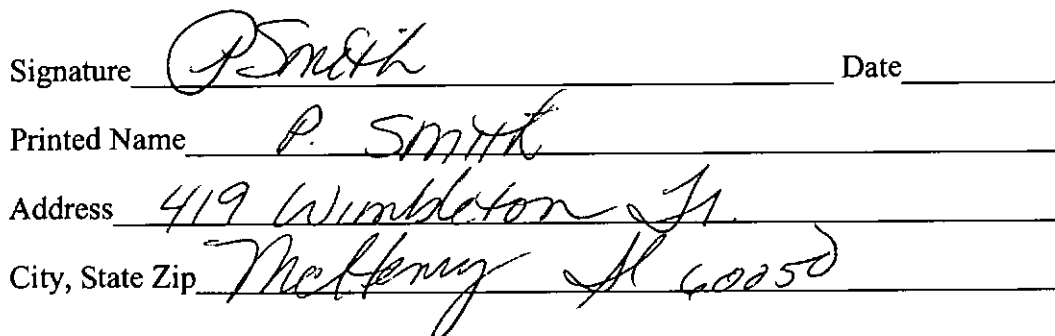 Signature PSmith Date
Printed Name P. Smith
Address 419 Wimbleton Tr.
City, State Zip McHenry Il 60050